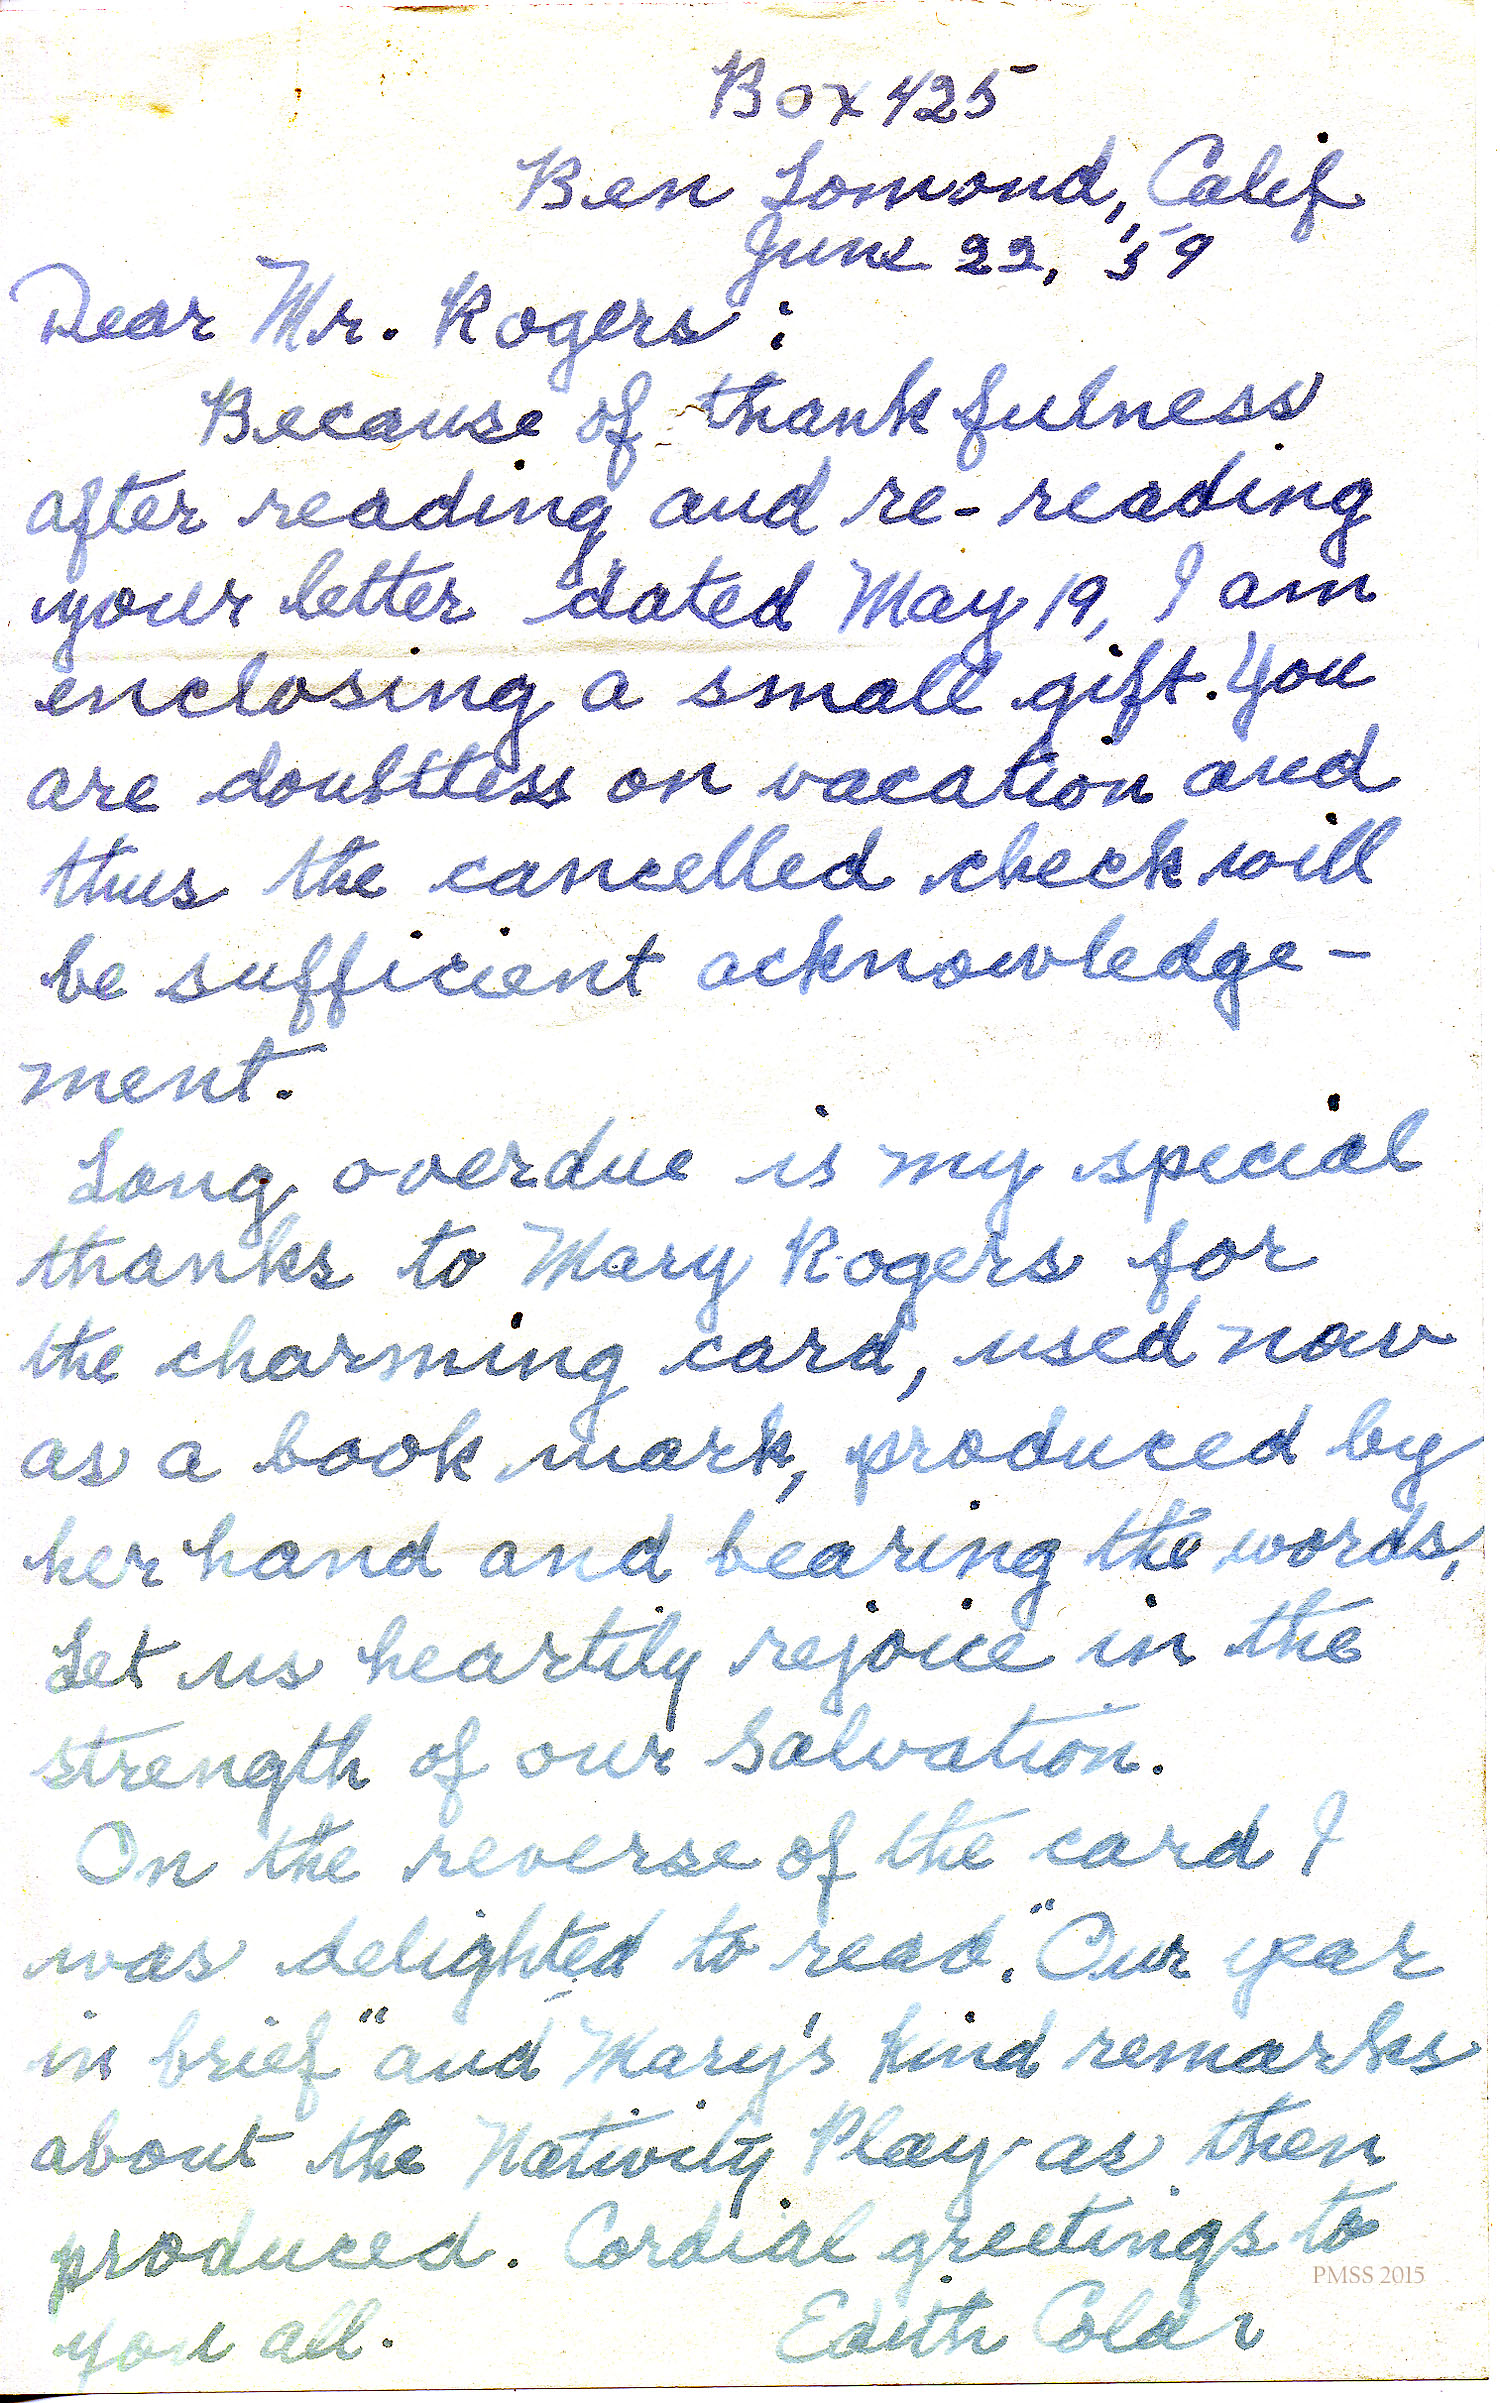 Box 425
Ben Lomond, Calif
June 22, '59
Dear Mr. Rogers:
Because of thankfulness
after reading and re-reading
your letter dated May 19, I am
enclosing a small gift. You
are doubtless on vacation and
thus the cancelled check will
be sufficient acknowledge-
ment.
Long overdue is my special
thanks to Mary Rogers for
the charming card, used now
as a book mark, produced by
her hand and bearing the words,
Let us heartily rejoice in the
strength of our Salvation.
On the reverse of the card I
was delighted to read, "Our year
in brief" and Mary's kind remarks
about the Nativity Play as then
produced. Cordial greetings to
PMSS 2015
you all. Edith Cold